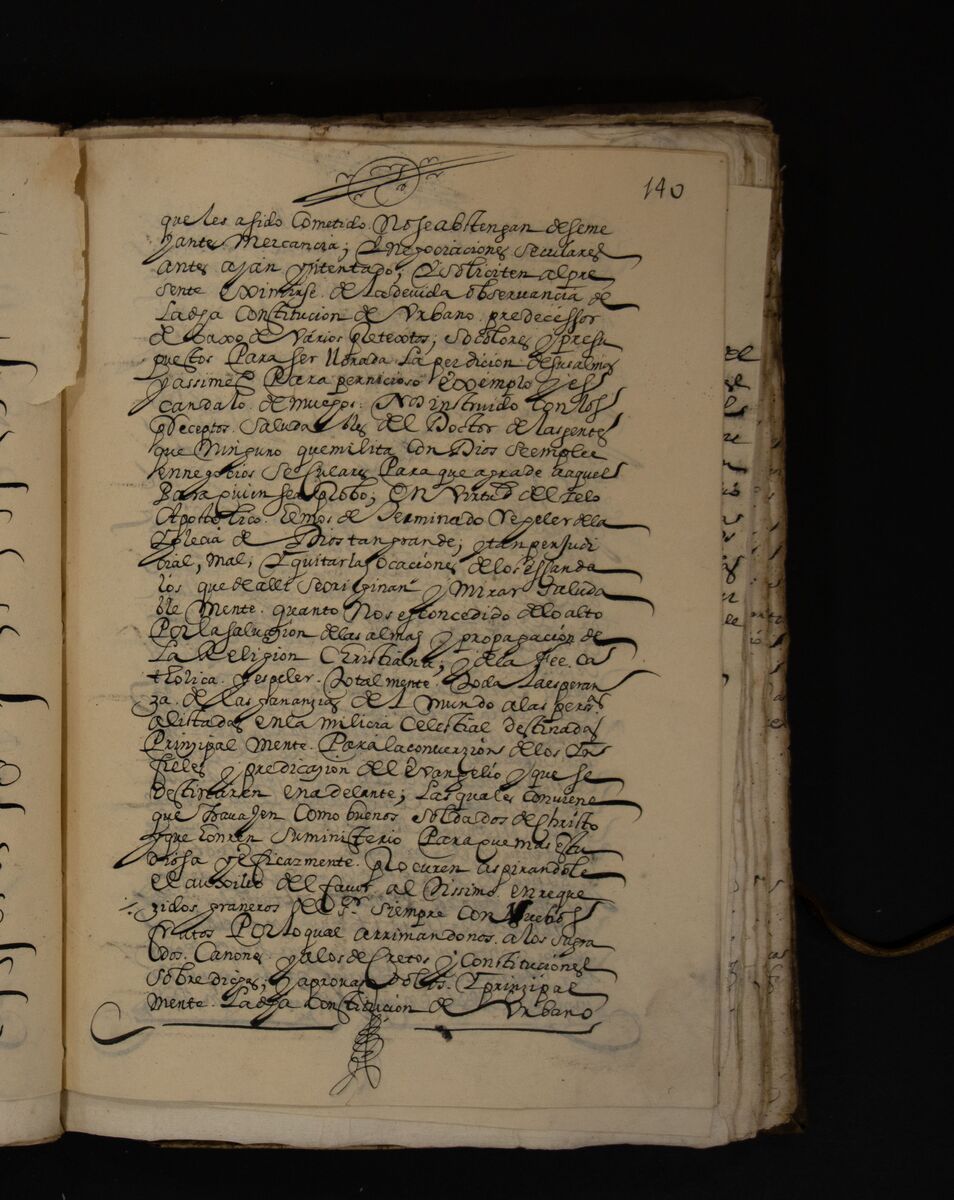 140
que les a sido Cometido. No se abstengan de seme
jante Mercancia; Y negociaciones seculares
antes ajan yntentado; Y soliciten al pre
sente eximirse de la devida observancia de
La dha Constitucion de Urbano predecessor
de baxo de Varios pretextos; so colores y presu
puestos Para ser llorada La perdicion de sus almas
y assimes Para pernicioso exemplo y es
candalo de muchos. Nos instruido con los
preceptos Saluda bles del Doctor de las gentes
que Ninguno que milita con Dios se emplee
en negocios Seculares Para que agrade a aquel
Para quien se a probo; En Virtud del zelo
Apostolico. emos de Terminado Repeler de la
Iglecia de Dios tan grande; y tan perjudi
cial, mal; Y quitar las ocaciones de los escanda
los que de alli se originan y Mirar Saluda
ble Mente quanto Nos es concedido de lo alto
Por la salvacion de las almas y propagacion de
La Religion Christiana; y de la Fee. Ca
tholica. Y espeler. Total mente. Toda La esperan
za de las ganancias del Mundo a las persas
alistadas en la milicia Celestial destinadas
Principal Mente. Para la converzion de los In
fieles y predicazion del Evangelio y que se
destinaren en adelante; Las quales conviene
que travajen como buenos soldados de Christo
y que honren su ministerio Para que mas estu
diosa y eficazmente. procuren aspirandole
el auxilio del favor al tissimo enrique
zidos graneros del Sr. siempre con Nuebos
frutos Por lo qual arrimandonos a los sagra
dos. Canones y a los decretos y Constituciones
Sobre dichas; y aprovandolos. Y principal
mente. La dha Constitucion de Urbano